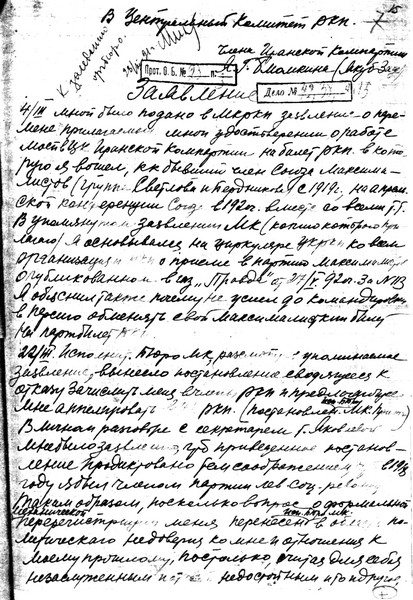 В Центральный Комитет РКП.
Члена Иранской Компартии
Я. Г. Блюмкина (Якуб-Заде)
К заседанию
Оргбюро.
Прот. О. Б. №
Дело №
Заявление
4/III мной было подано в МК РКП заявление о пере-
мене прилагаемого мной удостоверения о работе
моей в ЦК Иранской Компартии на билет РКП. в кото-
рую я вошел, как бывший член Союза Максима-
листов (группа Светлова и Бердникова) с 1919г. на апрель-
ской конференции Союза в 1920г. вместе со всеми т.т.
В упомянутом заявлении МК (копию которого при-
лагаю) я основывался на циркуляре ЦК РКП ко всем
организациям о приеме в партию максималистов
опубликованном в газ. "Правда" от
Я объяснил также почему не успел до командировки
в Персию обменять свой максималистский билет
на партбилет РКП.
22/III. Исполнит. Бюро МК, рассмотрев упоминаемое
заявление, вынесло постановление сводящееся к
отказу зачислить меня в члены РКП и предложившее
мне апеллировать РКП. (постановлен. МК
В личном разговоре с секретарем т. Яковлевой
мне было заявлено, что приведенное постанов-
ление продиктовано тем соображением, в 1918
году я был членом партии лев. соц.-револ.
Таким образом, поскольку вопрос о формальной
механической
перерегистрации меня перенесен в область по-
литического недоверия ко мне и отношения к
моему прошлому, постольку, считая для себя
незаслуженным недостойным и то и другое,